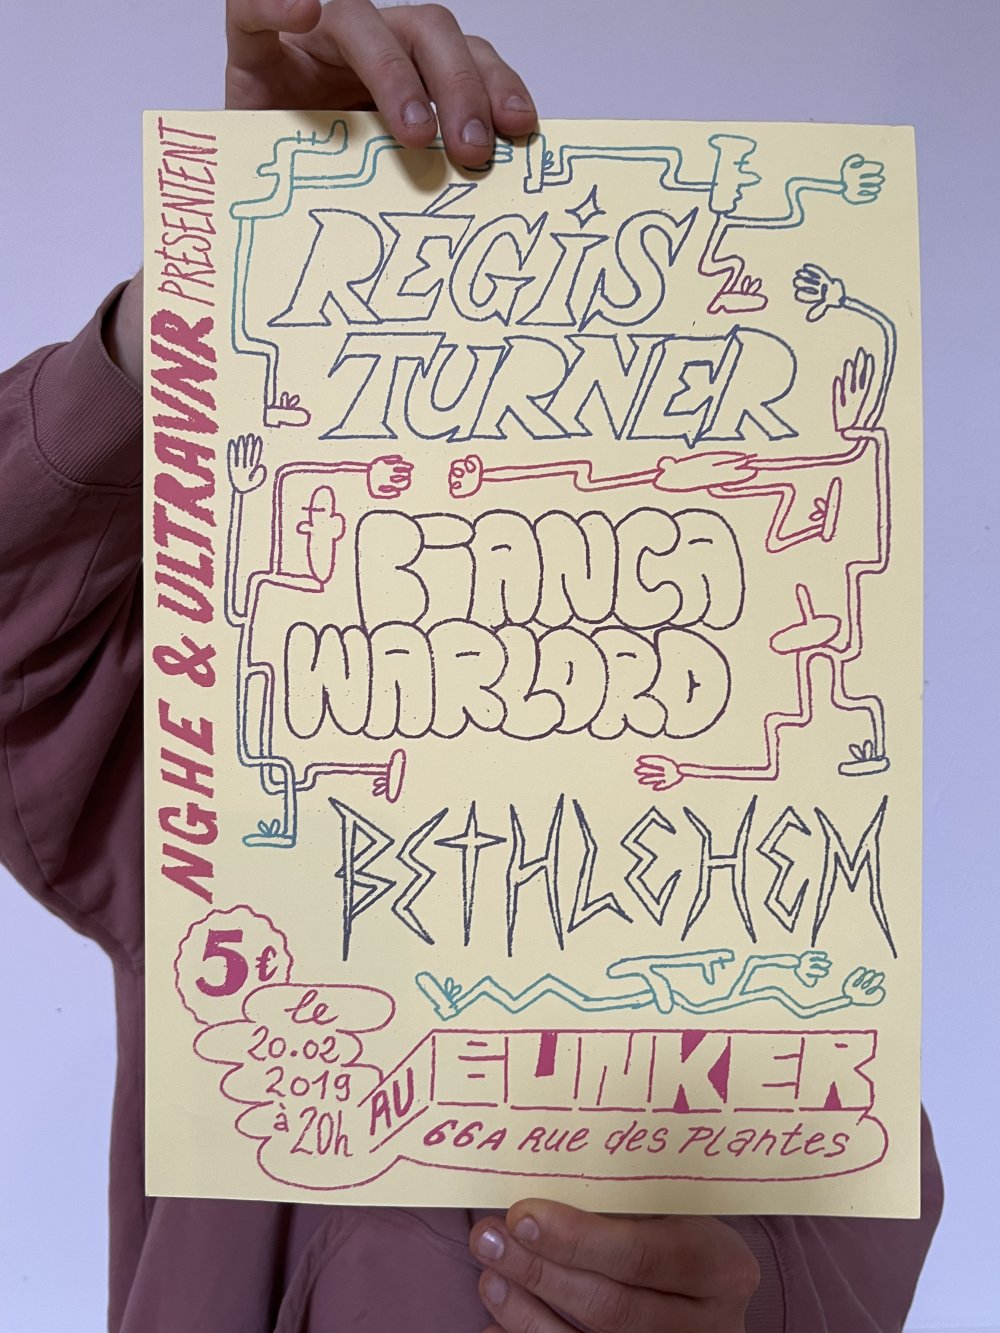 NGHE & ULTRAVNR PRÉSENTENT
RÉGIS
TURNER
BIANCA
WARLORD
BETHLEHEM
5€
le
20.02
2019
à 20h
AU BUNKER
66A Rue des Plantes